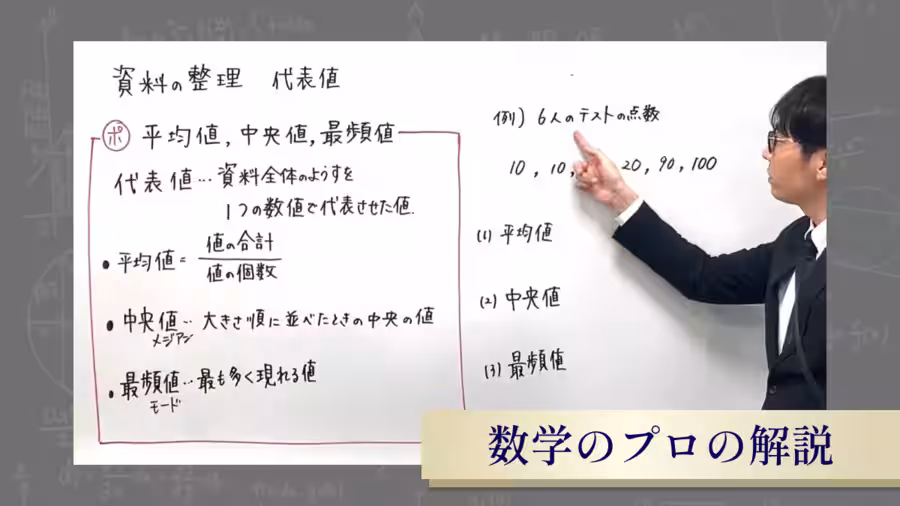 資料の整理 代表値
ポ 平均値, 中央値, 最頻値
代表値… 資料全体のようすを
1つの数値で代表させた値.
• 平均値 = 値の合計 / 値の個数
• 中央値… 大きさ順に並べたときの中央の値
メジアン
• 最頻値… 最も多く現れる値
モード
例) 6人のテストの点数
10, 10, 20, 90, 100
(1) 平均値
(2) 中央値
(3) 最頻値
数学のプロの解説